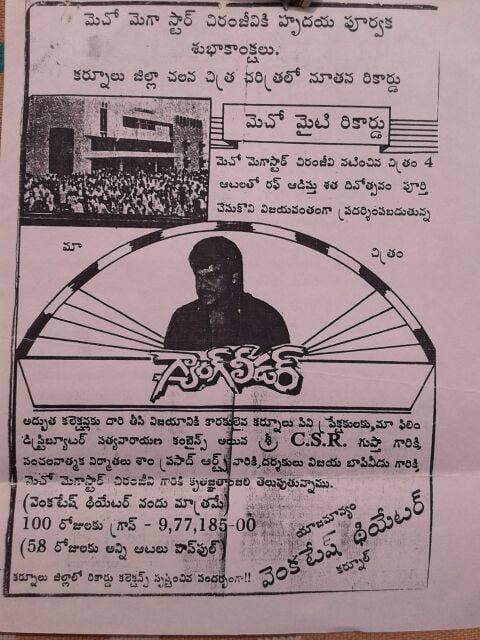 మెచో మెగా స్టార్ చిరంజీవికి హృదయ పూర్వక
శుభాకాంక్షలు.
కర్నూలు జిల్లా చలన చిత్ర చరిత్రలో నూతన రికార్డు
మెచో మైటి రికార్డు
మెచో మెగాస్టార్ చిరంజీవి నటించిన చిత్రం 4
ఆటలతో రఫ్ ఆడిస్తు శత దినోత్సవం పూర్తి
చేసుకొని విజయవంతంగా ప్రదర్శింపబడుతున్న
మా చిత్రం
గ్యాంగ్ లీడర్
అద్భుత కలెక్షన్లకు దారి తీసి విజయానికి కారకులైన కర్నూలు సినీ ప్రేక్షకులకు,మా ఫిలిం
డిస్ట్రిబ్యూటర్ సత్యనారాయణ కంబైన్స్ అయిన శ్రీ C.S.R. గుప్తా గారికి,
సంచలనాత్మక నిర్మాతలు శాం ప్రసాద్ ఆర్ట్స్ వారికి,దర్శకులు విజయ బాపినీడు గారికి
మెచో మెగాస్టార్ చిరంజీవి గారికి కృతజ్ఞతాంజలి తెలుపుతున్నాము.
(వెంకటేష్ థియేటర్ నందు మాత్రమే)
100 రోజులకు గ్రాస్ - 9,77,185-00
(58 రోజులకు అన్ని ఆటలు హౌస్‌ఫుల్)
కర్నూలు జిల్లాలో రికార్డు కలెక్షన్స్ సృష్టించిన సందర్భంగా!!
యాజమాన్యం
వెంకటేష్ థియేటర్
కర్నూల్